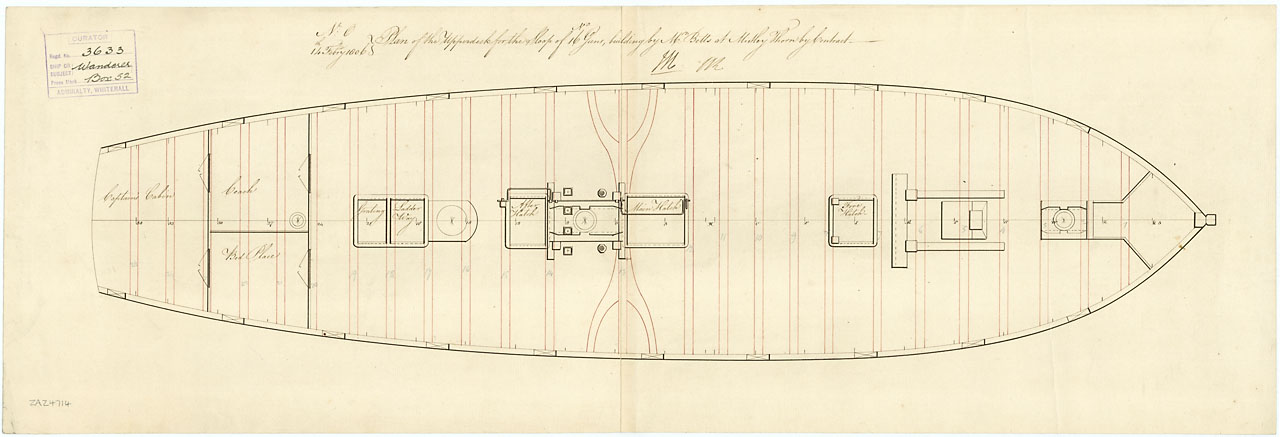 CURATOR
Regd. No. 3633
SHIP OR Wanderer
SUBJECT
Press Mark Box 52
ADMIRALTY, WHITEHALL
No. 6
14 Febry 1806
Plan of the Upperdeck for the Sloop of 16 Guns, building by Mr. Betts at Mistley Thorn by Contract
Captains Cabin
Coach
Bed Place
Ladder Way
After Hatch
Main Hatch
Fore Hatch
ZAZ4714